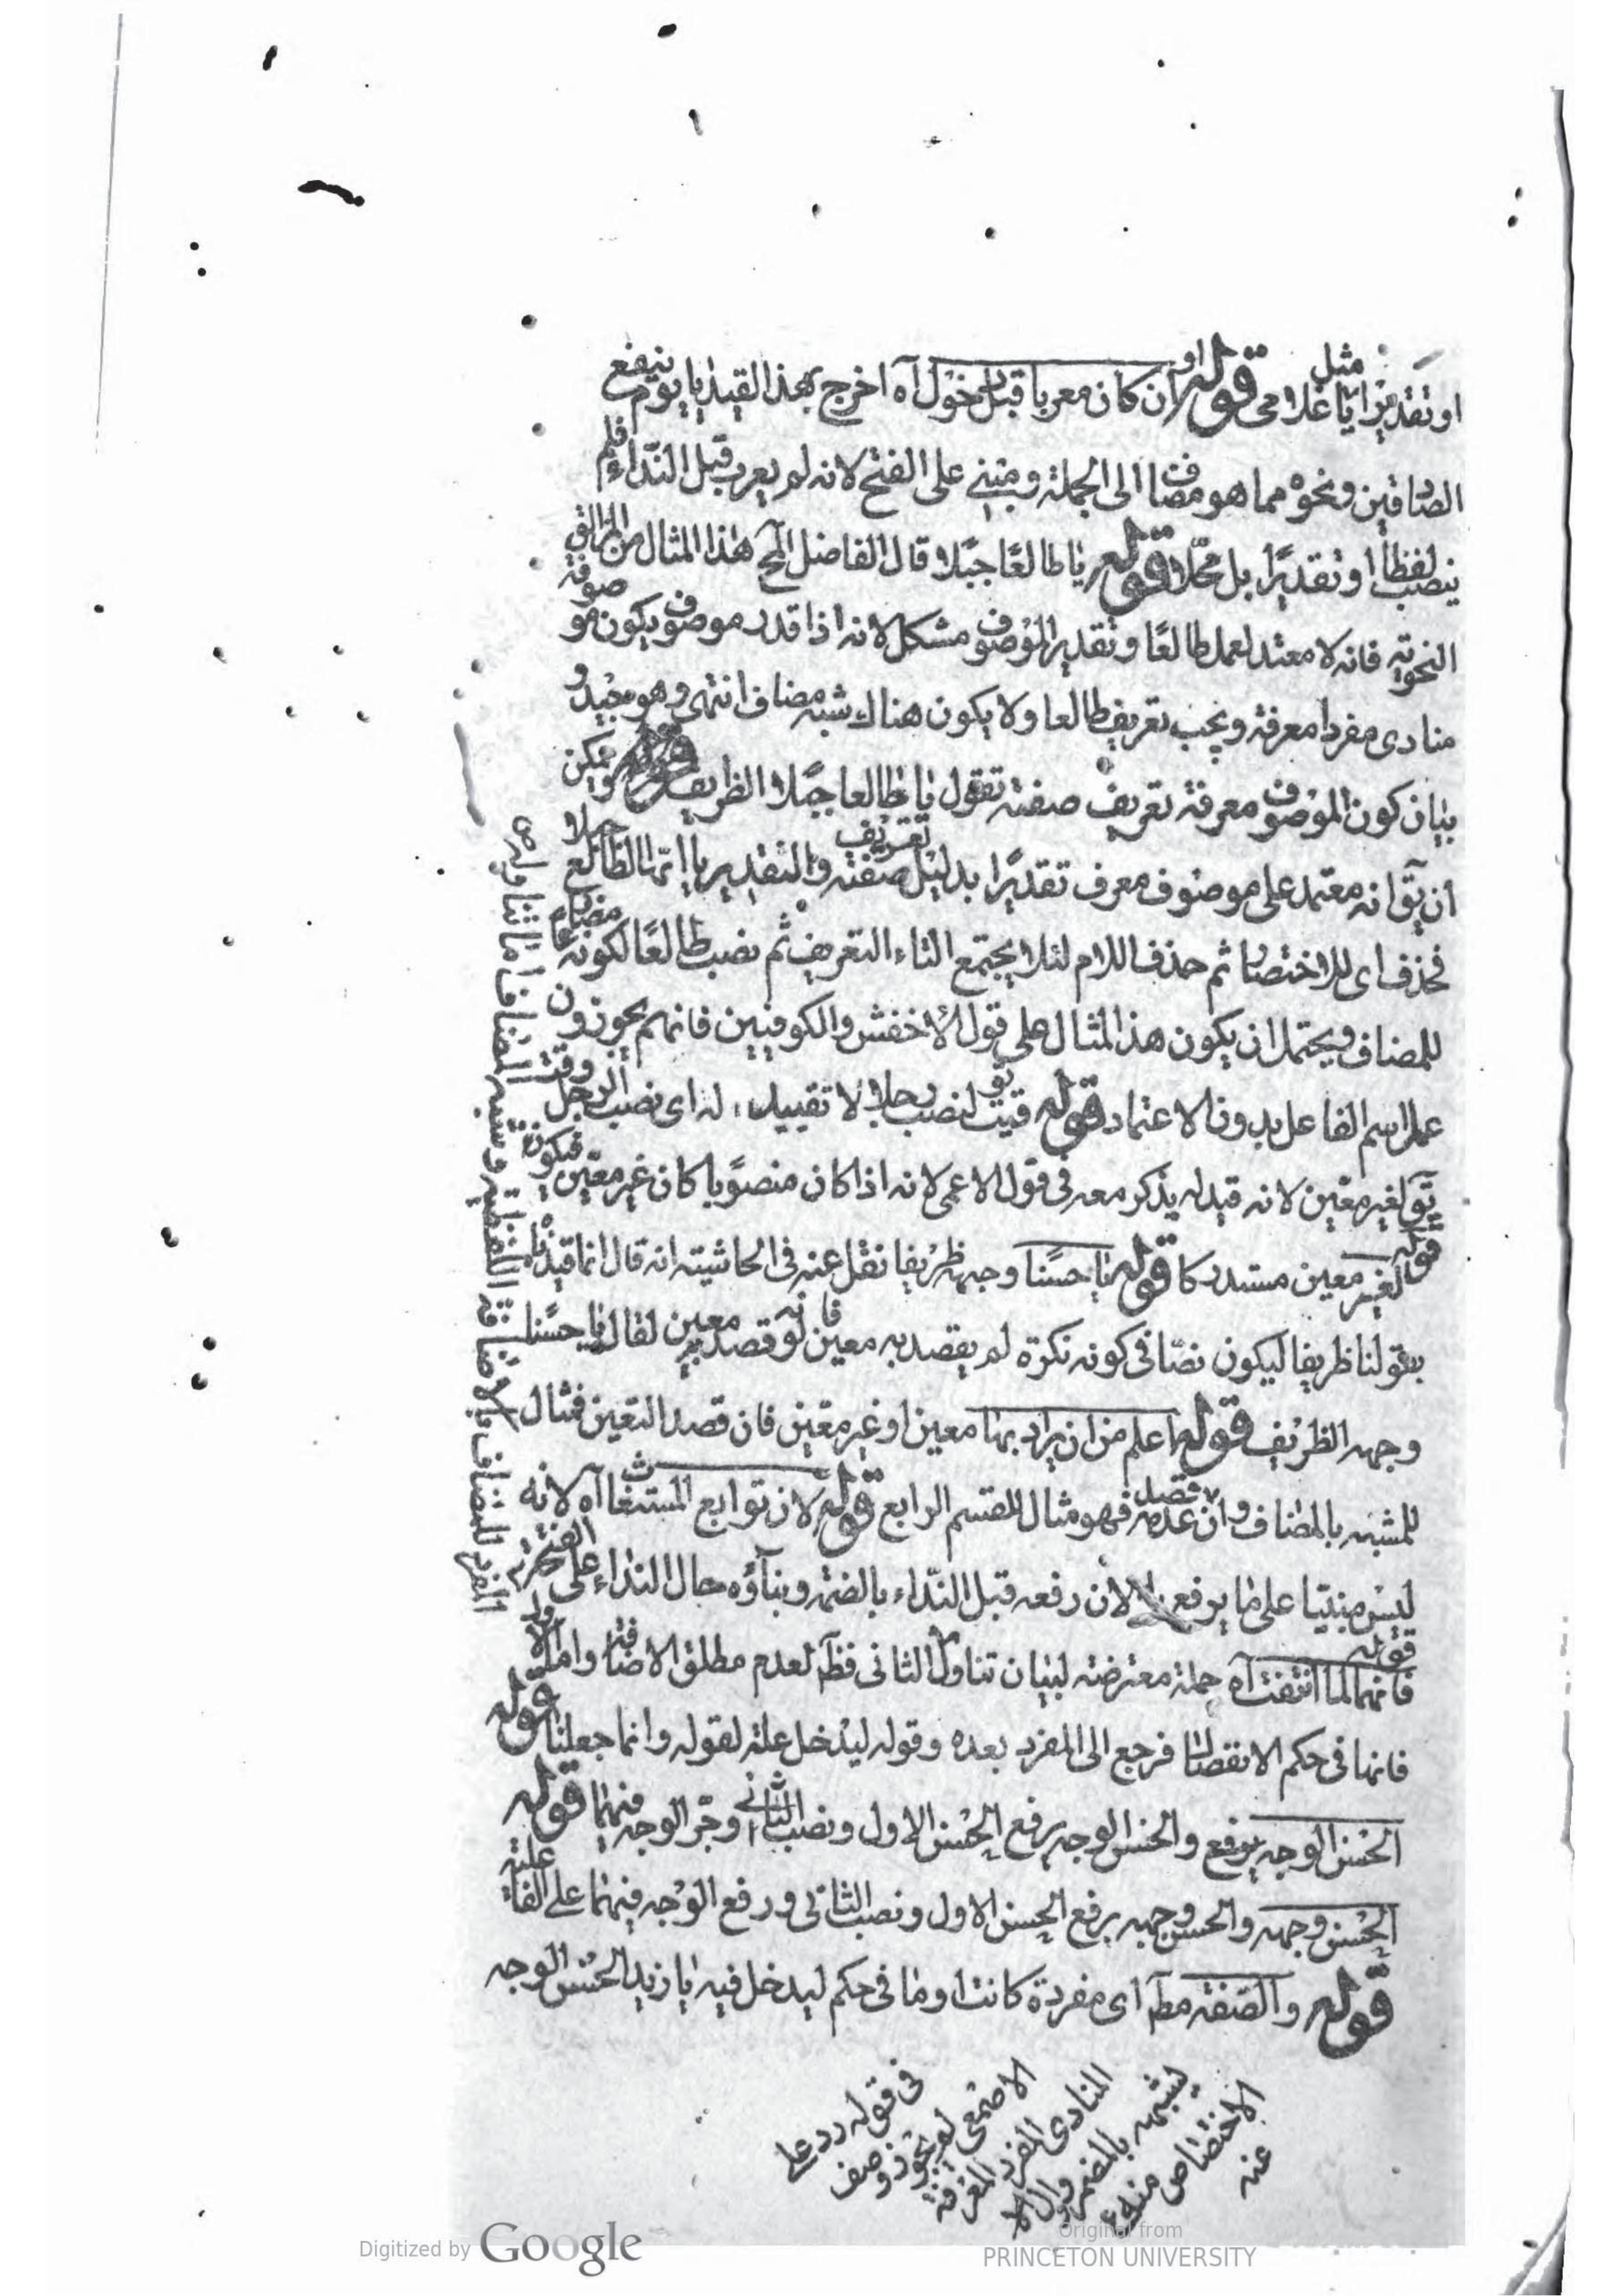 او تقديرا مثل يا غلامى قوله او ان كان معربا قبل دخول آه اخرج بهذا القيد يا يوم ينفع
الصادقين ونحوه مما هو مضاف الى الجملة ومبنى على الفتح لانه لم يعرب قبل النداء فلم
ينصب لفظا او تقديرا بل محلا قوله يا طالعا جبلا قال الفاضل المح هذا المثال من
النحوية فانه لا معتمد لعمل طالعا وتقدير الموصوف مشكل لانه اذا قدر موصوف يكون موصوفه
منادى مفردا معرفة ويجب تعريف طالعا ولا يكون هناك شبه مضاف انتهى وهو
بيان كون الموصوف معرفة تعريف صفته تقول يا طالعا جبلا الظريف ويمكن
ان يق انه معتمد على موصوف معرف تقديرا بدليل تعريف صفته والتقدير يا ايها الطالع جبلا
فحذف اى للاختصار ثم حذف اللام لئلا يجتمع التعريف ثم نصب طالعا لكونه مضارعا
للمضاف ويحتمل ان يكون هذا المثال على قول الاخفش والكوفيين فانهم يجوزون
عمل اسم الفاعل بدون الاعتماد قوله توقيت لنصب رجلا لا تقييد له اى نصب الرجل وقت
يق لغير معين لانه قيد له يذكر معه فى قول الاعمى لانه اذا كان منصوبا كان غير معين فيكون
قوله لغير معين مستدركا قوله يا حسنا وجهه ظريفا نقل عنه فى الحاشية انه قال انما قيدناه
بقولنا ظريفا ليكون نصا فى كونه نكرة لم يقصد به معين فانه لو قصد به معين لقال يا حسنا
وجهه الظريف قوله اعلم من ان يراد بها معين او غير معين فان قصد التعين فمثال
للمشبه بالمضاف وان قصد عدمه فهو مثال للقسم الرابع قوله لان توابع المستغاث آه لانه
ليس مبنيا على ما يرفع لان رفعه قبل النداء بالضمة وبناؤه حال النداء على الفتح
قوله فانها لما انتفت آه جملة معترضة لبيان تناول الثانى فظ لعدم مطلق الاضافة واما الاول
فانها فى حكم الانفصال فرجع الى المفرد بعده وقوله ليدخل علة لقوله وانما جعلنا قوله
الحسن الوجه يرفع والحسن الوجه برفع الحسن الاول ونصب الثانى وجر الوجه فيهما قوله
الحسن وجهه والحسن وجهه برفع الحسن الاول ونصب الثانى ورفع الوجه فيهما على الفاعلية
قوله والصفة مط اى مفردة كانت او ما فى حكم ليدخل فيه يا زيد الحسن الوجه
فى قوله رد على
الاصمعى لم يجوز وصف
المنادى المفرد المعرفة
لشبهه بالمضمر
الاختصاص منه
عنه
Digitized by Google
Original from
PRINCETON UNIVERSITY